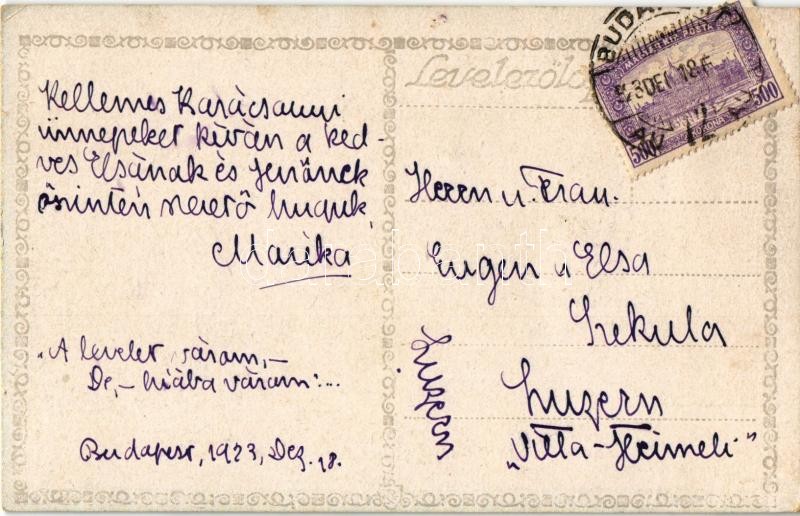 Kellemes Karácsonyi
ünnepeket kíván a ked-
ves Elsának és Jenőnek
őszintén szerető huguk
Marika
"A levelet várom,-
De,- hiába várom:...
Budapest, 1923, Dez. 18.
Levelezőlap
BUDAPEST
MAGYAR KIR. POSTA
500 KORONA 500
Herrn u. Frau.
Eugen u Elsa
Szekula
Luzern
"Villa-Heimeli"
Luzern